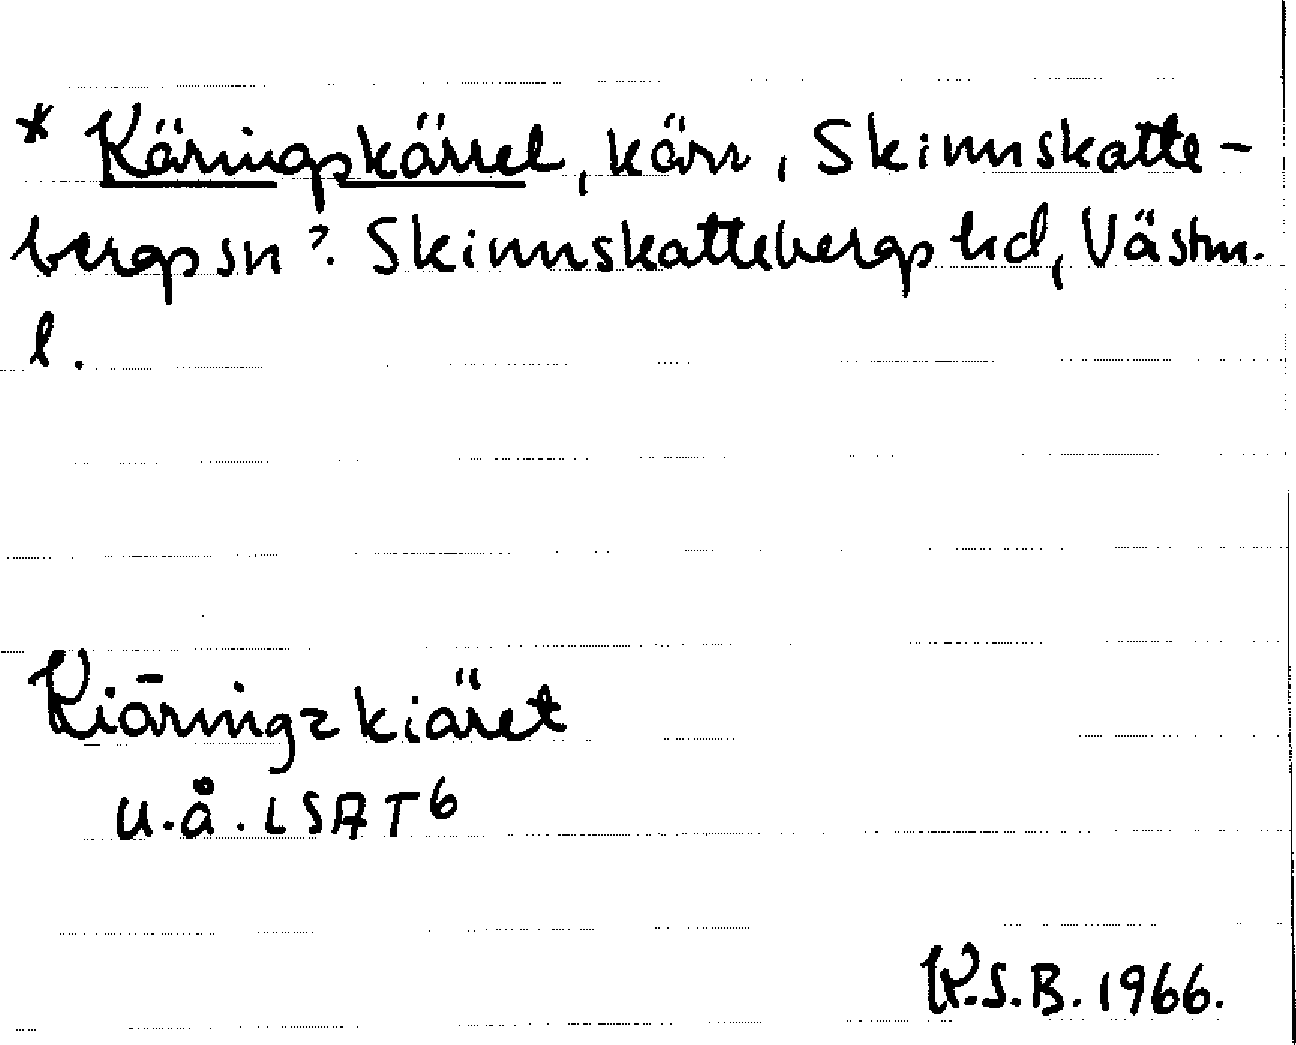 * Käringskärret, kärr, Skinnskatte-
bergs sn? Skinnskattebergs hd, Västm.
l.
Kiäringzkiäret
u.å. LSA T6
K.S.B. 1966.